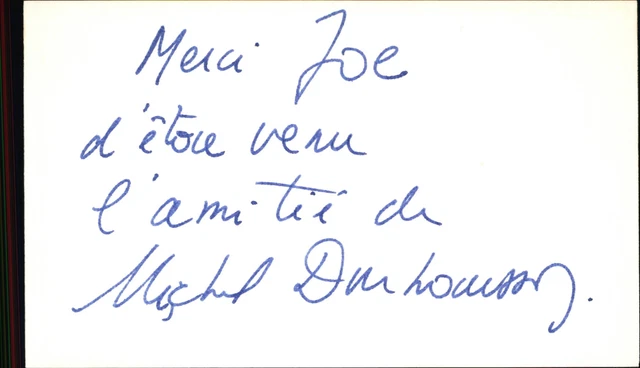 Merci Joe
d'être venu
l'amitié de
Michel Duchaussoy.